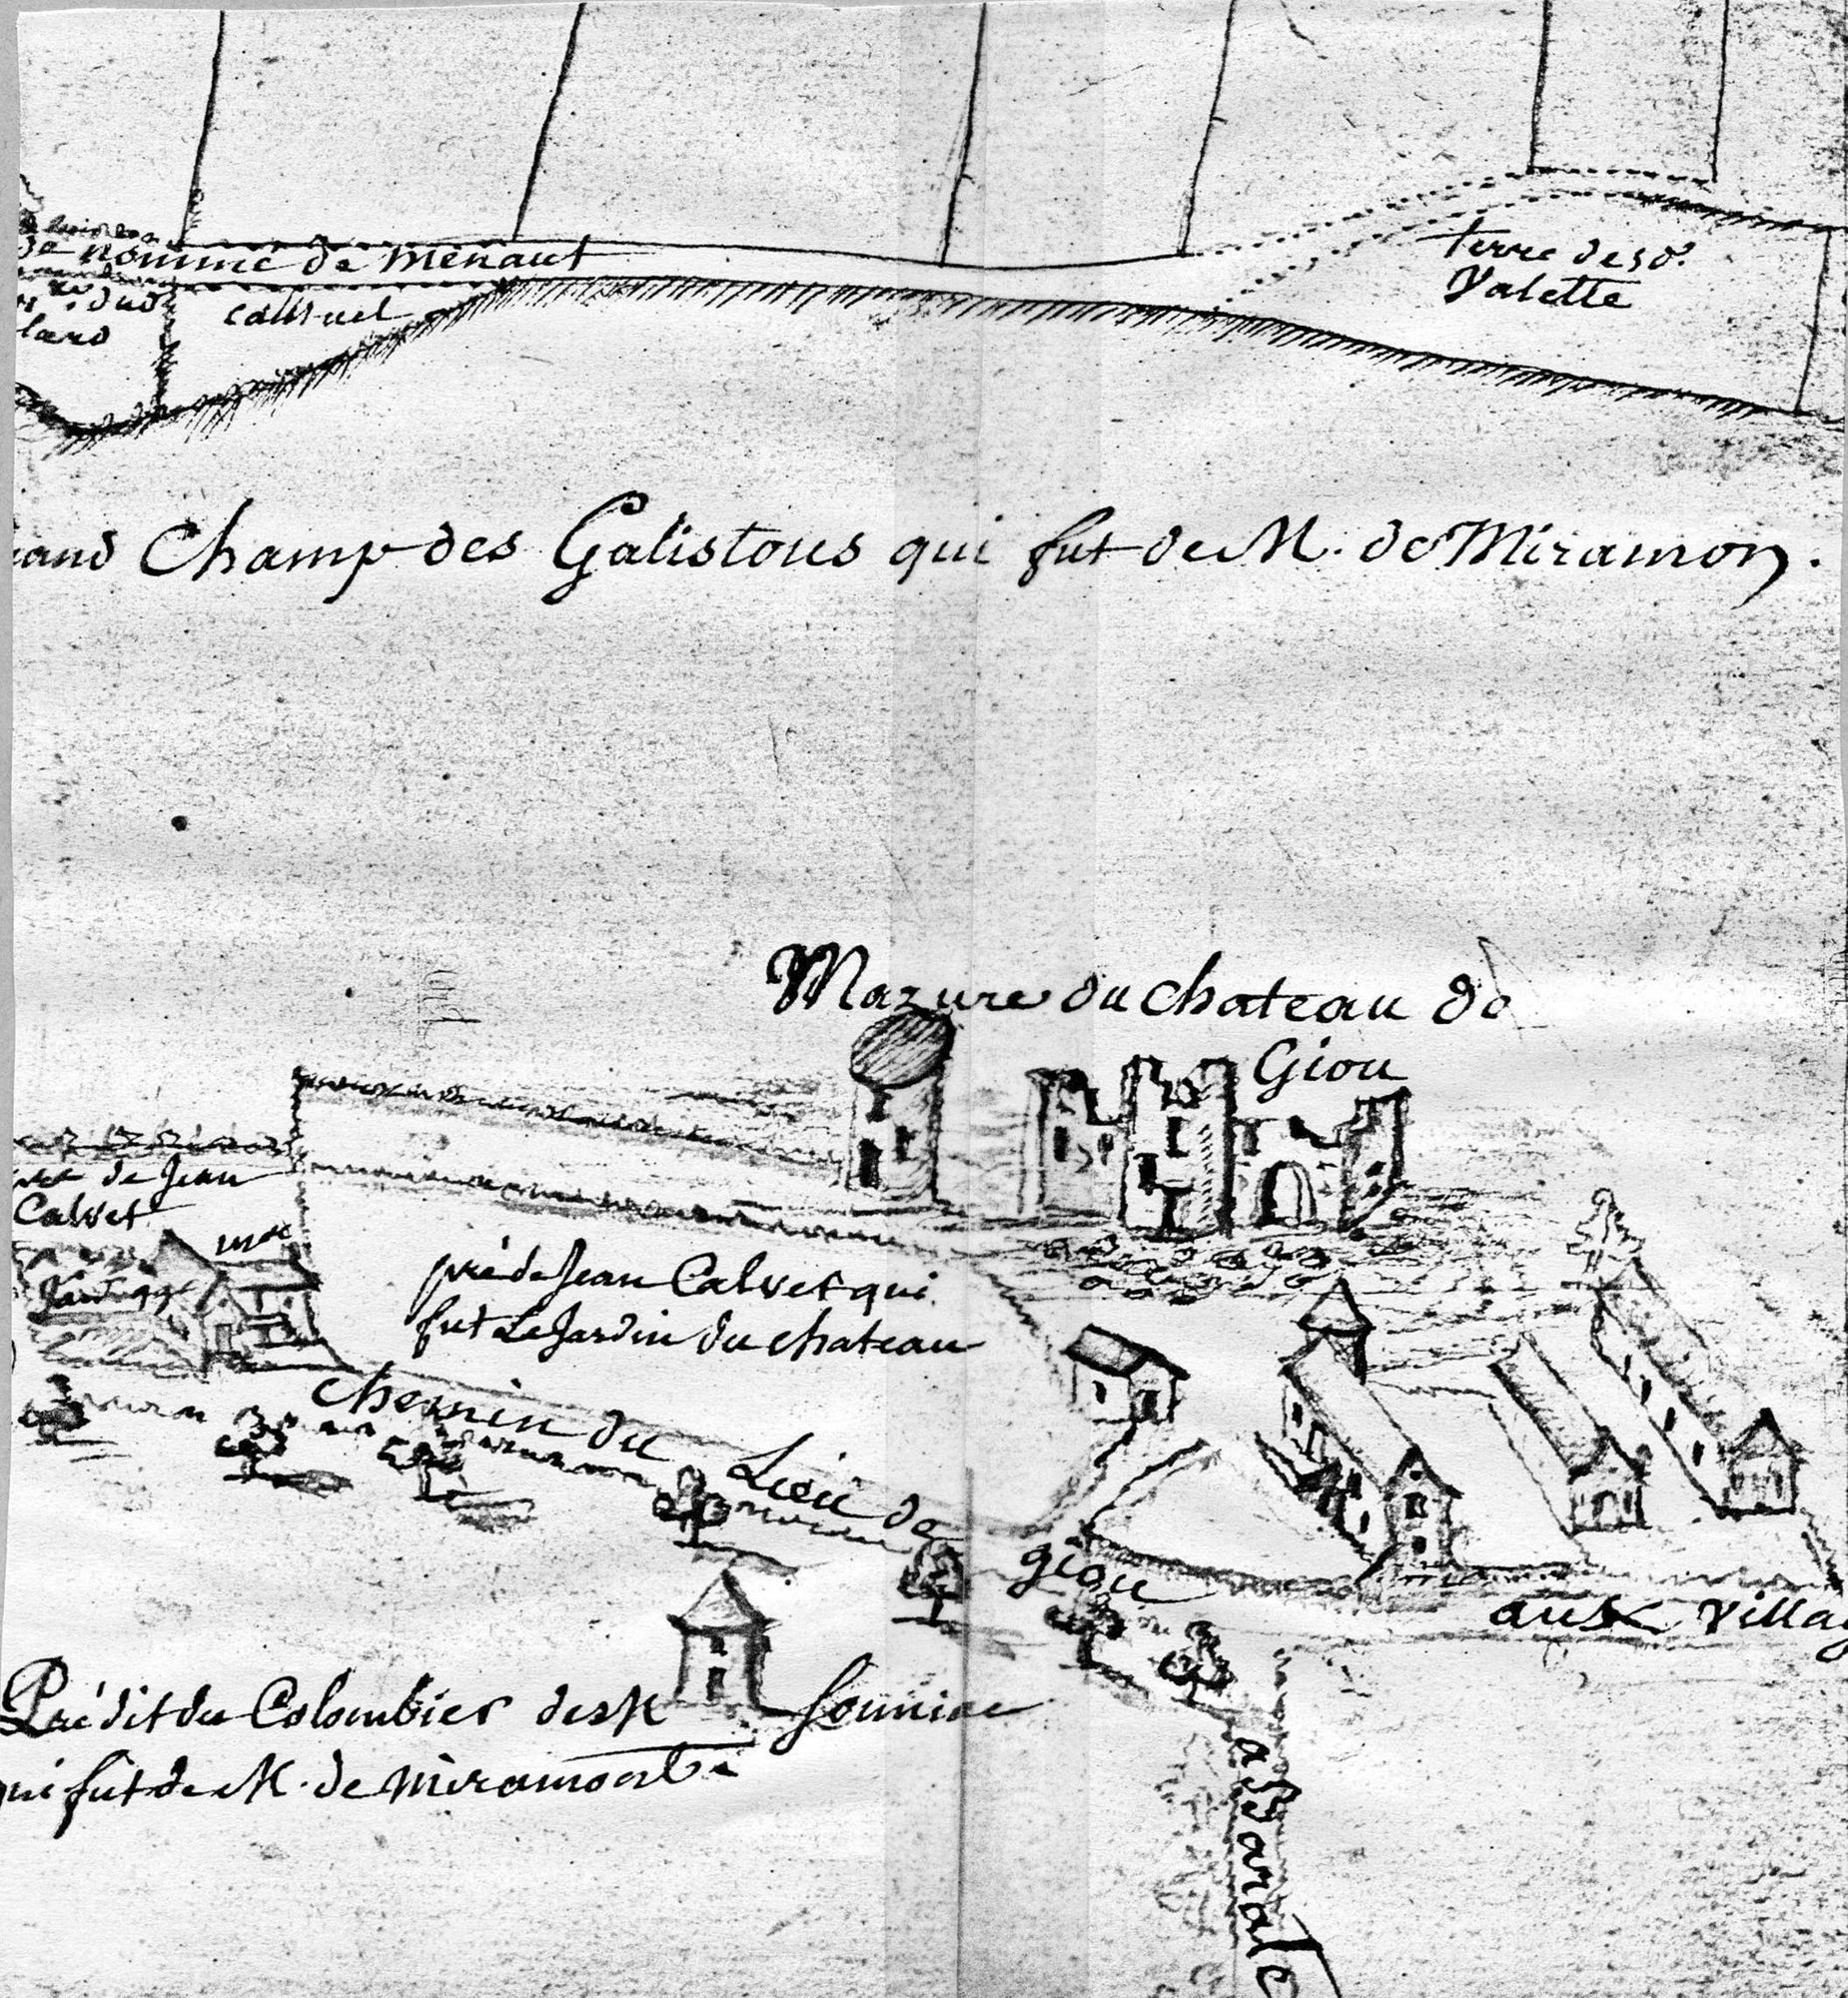 nommé de Menaut
lard
terre de sr.
Valette
and Champ des Galistous qui fut de M. de Miramon.
Mazure du chateau de
Giou
de Jean
Calvet
pré de Jean Calvet qui
fut Le Jardin du chateau
chemin du Lieu de
giou
aux villag
Pré dit du Colombier de M
qui fut de M. de Miramont